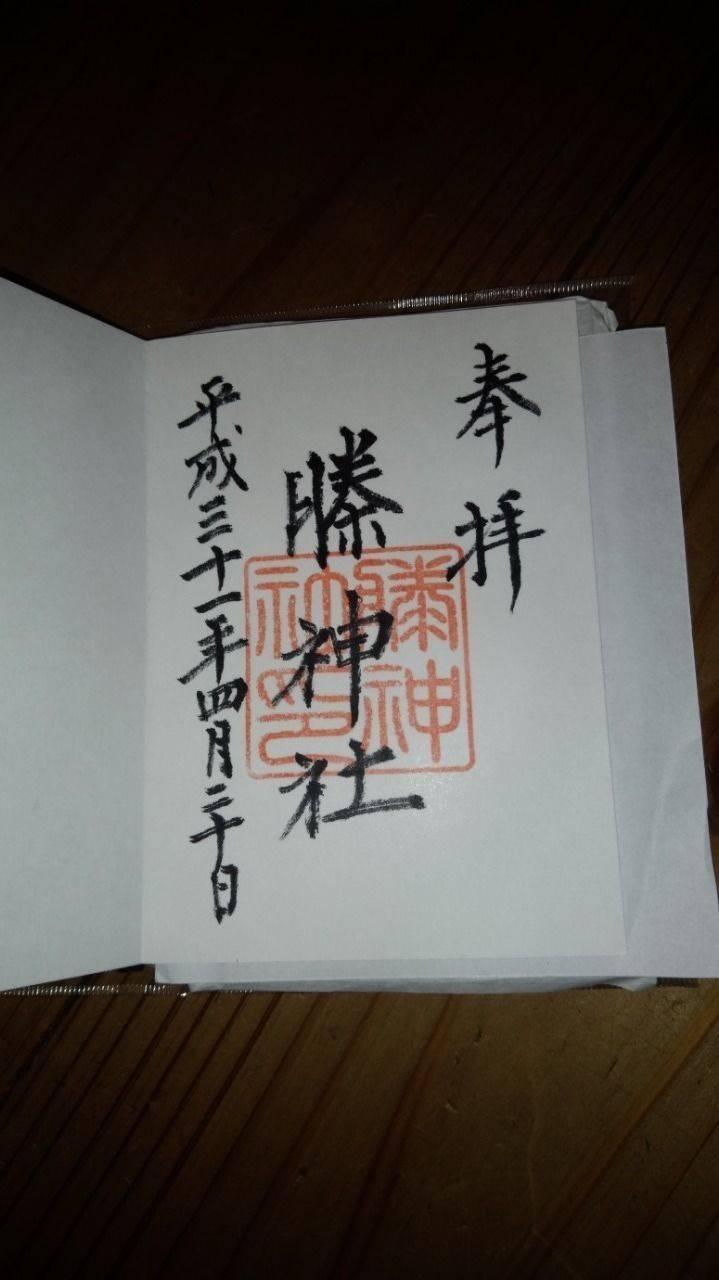 奉拝
榺神社
榺神
社印
平成三十一年四月二十日